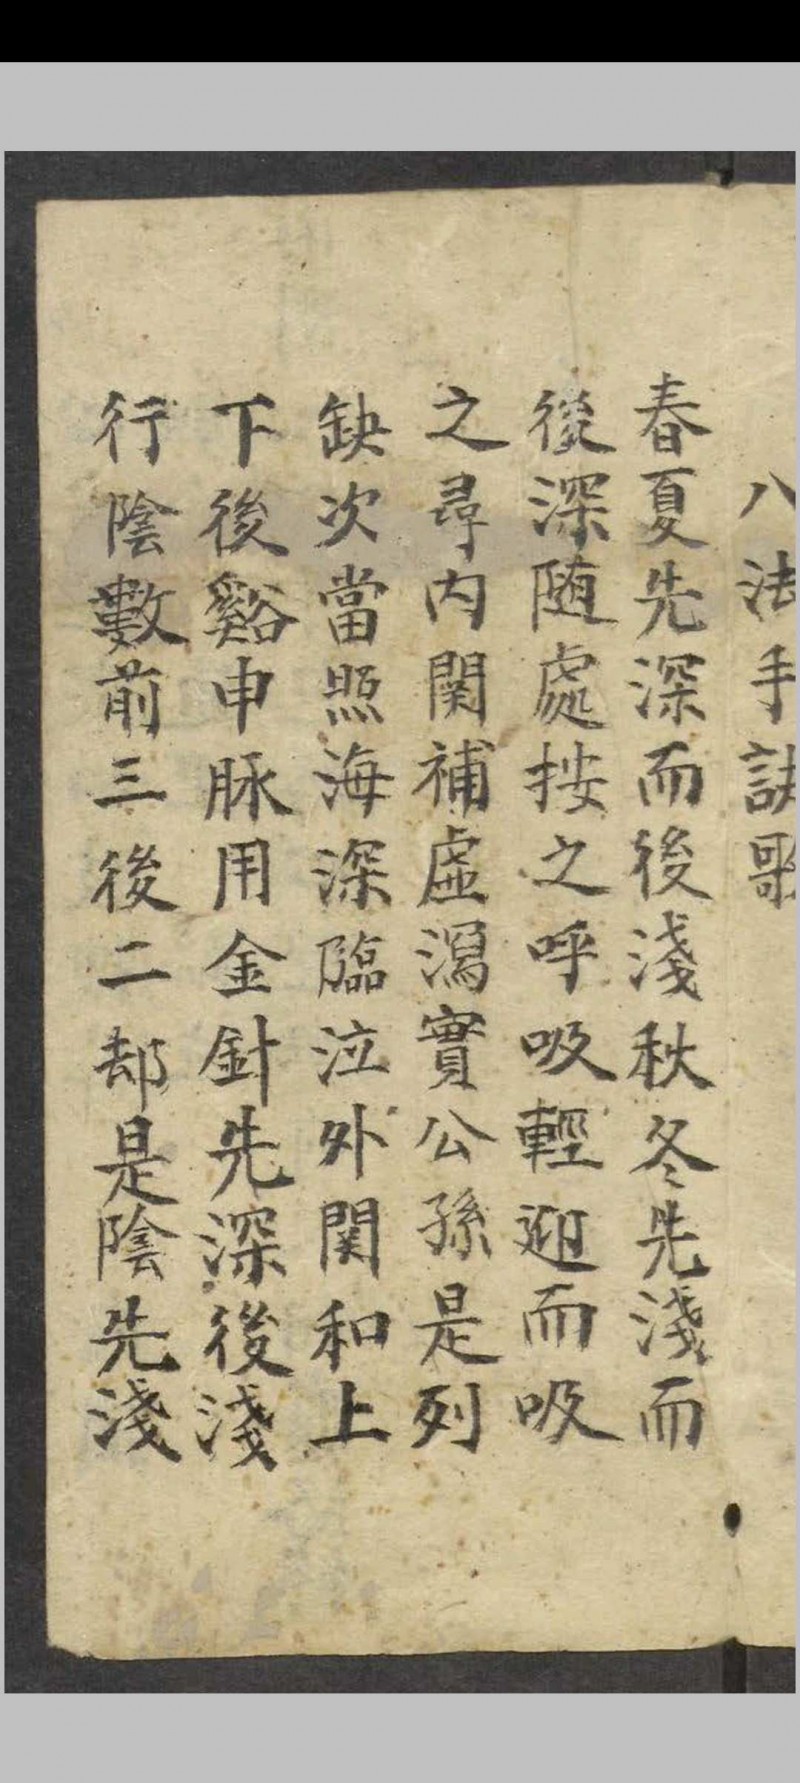 八法手訣歌
春夏先深而後淺秋冬先淺而
後深随處按之呼吸輕迎而吸
之尋内関補虛瀉實公孫是列
缺次當照海深臨泣外関和上
下後谿申脉用金針先深後淺
行陰數前三後二却是陰先淺